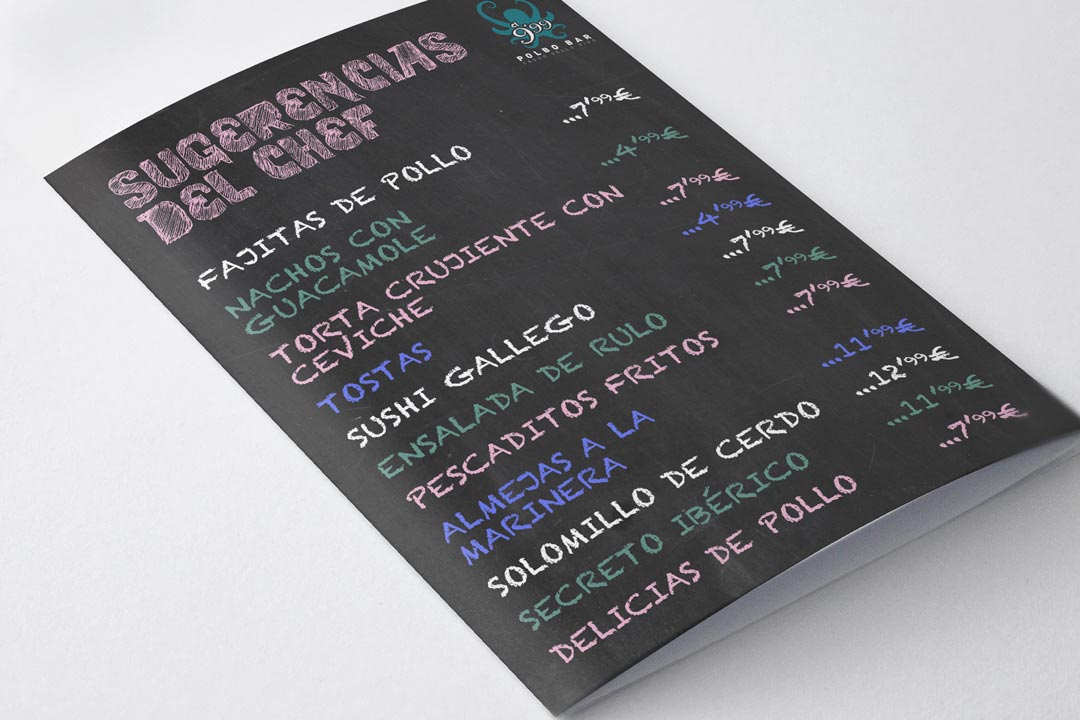 a
9'99
POLBO BAR
SUGERENCIAS
DEL CHEF
FAJITAS DE POLLO ...7'99€
NACHOS CON ...4'99€
GUACAMOLE
TORTA CRUJIENTE CON ...7'99€
CEVICHE
TOSTAS ...4'99€
SUSHI GALLEGO ...7'99€
ENSALADA DE RULO ...7'99€
PESCADITOS FRITOS ...7'99€
ALMEJAS A LA ...11'99€
MARINERA
SOLOMILLO DE CERDO ...12'99€
SECRETO IBÉRICO ...11'99€
DELICIAS DE POLLO ...7'99€